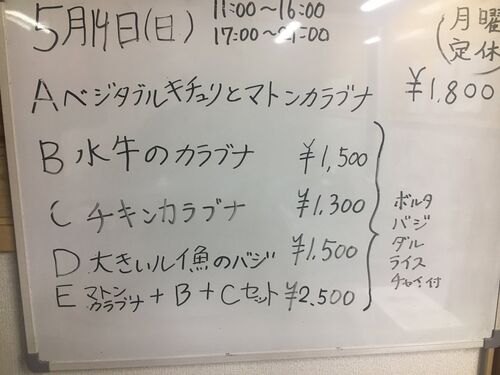 5月14日(日)
11:00〜16:00
17:00〜21:00
(月曜
定休
A ベジタブルキチュリとマトンカラブナ ¥1,800
B 水牛のカラブナ ¥1,500
C チキンカラブナ ¥1,300
D 大きいルイ魚のバジ ¥1.500
E マトン
カラブナ + B + Cセット ¥2.500
ボルタ
バジ
ダル
ライス
チャイ付